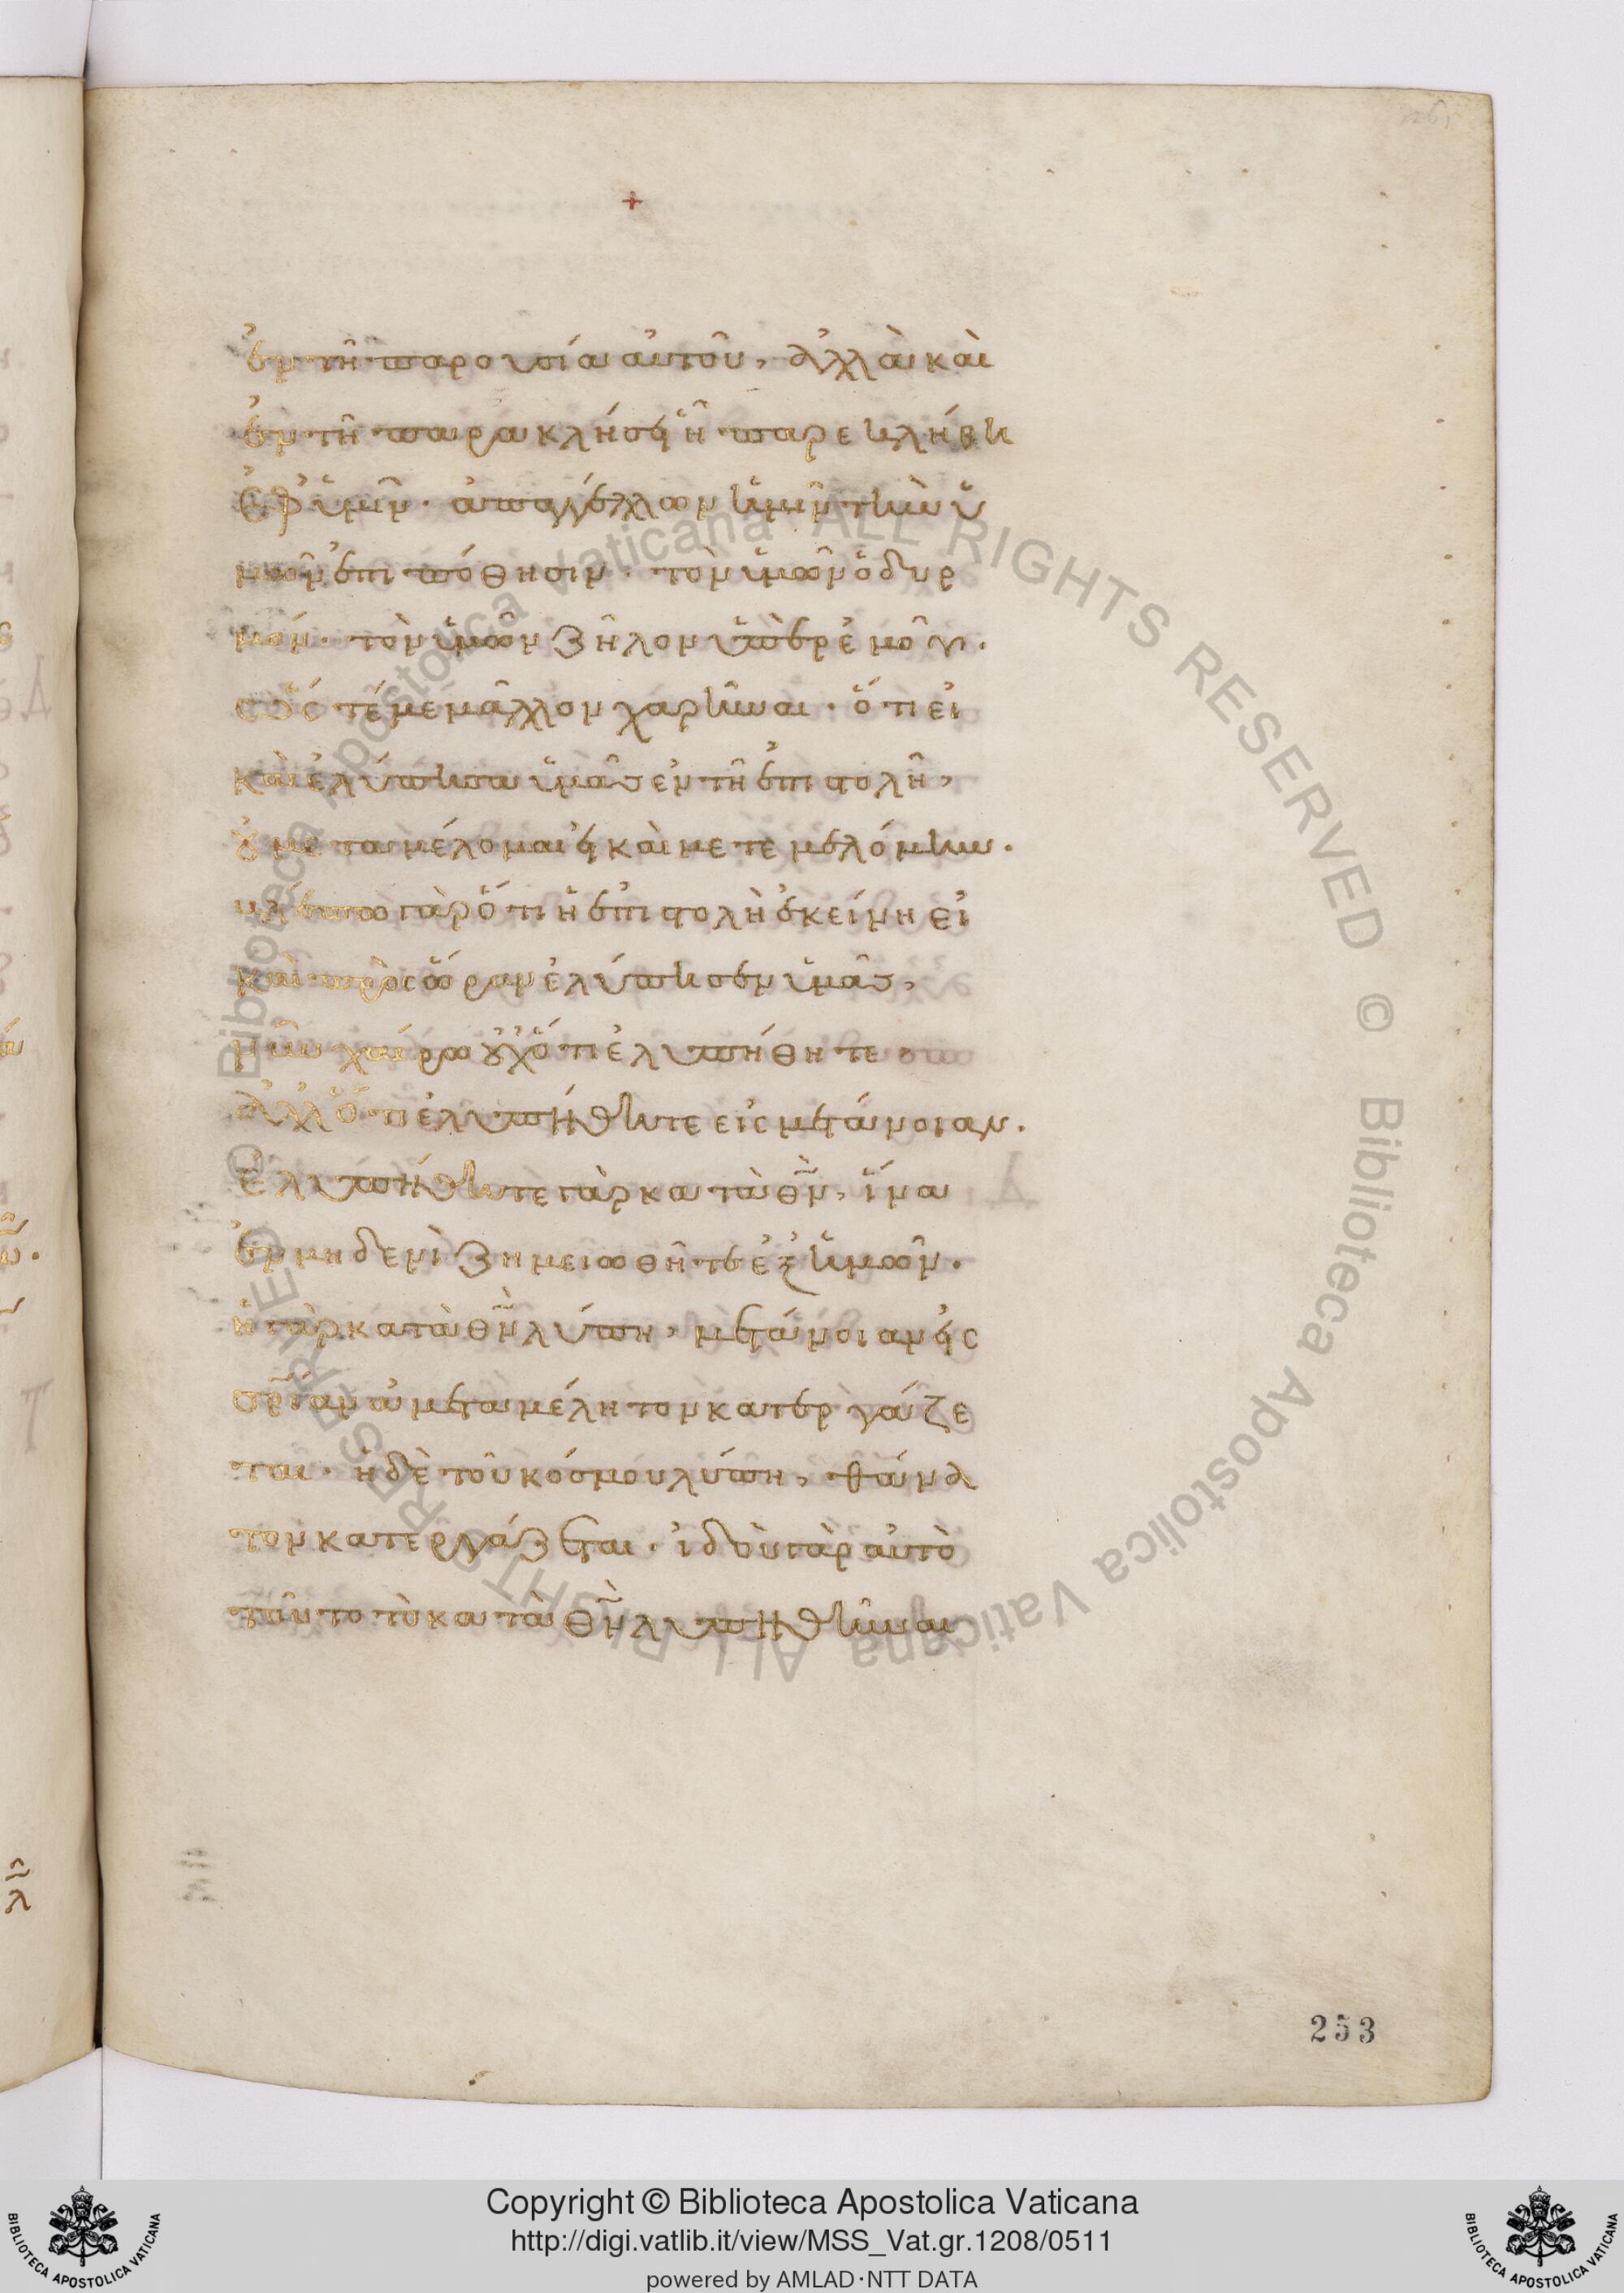 +
ἐν τῆ παρουσία αὐτοῦ, ἀλλὰ καὶ
ἐν τῆ παρακλήσει ἧ παρεκλήθη
ἐφ' ὑμῖν · ἀπαγγέλλων ὑμῖν τὴν ὑ
μῶν ἐπιπόθησιν · τὸν ὑμῶν ὀδυρ
μόν · τὸν ὑμῶν ζῆλον ὑπὲρ ἐμοῦ ·
ὥστέ με μᾶλλον χαρῆναι · ὅτι εἰ
καὶ ἐλύπησα ὑμᾶς ἐν τῆ ἐπιστολῆ,
οὐ μεταμέλομαι εἰ καὶ μετεμελόμην ·
βλέπω γὰρ ὅτι ἡ ἐπιστολὴ ἐκείνη εἰ
καὶ πρὸς ὥραν ἐλύπησεν ὑμᾶς,
νῦν χαίρω οὐχ ὅτι ἐλυπήθητε
ἀλλ' ὅτι ἐλυπήθητε εἰς μετάνοιαν ·
Ἐλυπήθητε γὰρ κατὰ θν, ἵνα
ἐν μηδενὶ ζημειωθῆτε ἐξ ὑμῶν ·
ἡ γὰρ κατὰ θν λύπη, μετάνοιαν εἰς
σρίαν ἀμεταμέλητον κατεργάζε
ται · ἡ δὲ τοῦ κόσμου λύπη, θάνα
τον κατεργάζεται · ἰδοὺ γὰρ αὐτὸ
τοῦτο τὸ κατὰ θν λυπηθῆναι
253
Copyright © Biblioteca Apostolica Vaticana
http://digi.vatlib.it/view/MSS_Vat.gr.1208/0511
powered by AMLAD·NTT DATA
BIBLIOTECA APOSTOLICA VATICANA
BIBLIOTECA APOSTOLICA VATICANA
© Biblioteca Apostolica Vaticana ALL RIGHTS RESERVED
© Biblioteca Apostolica Vaticana ALL RIGHTS RESERVED